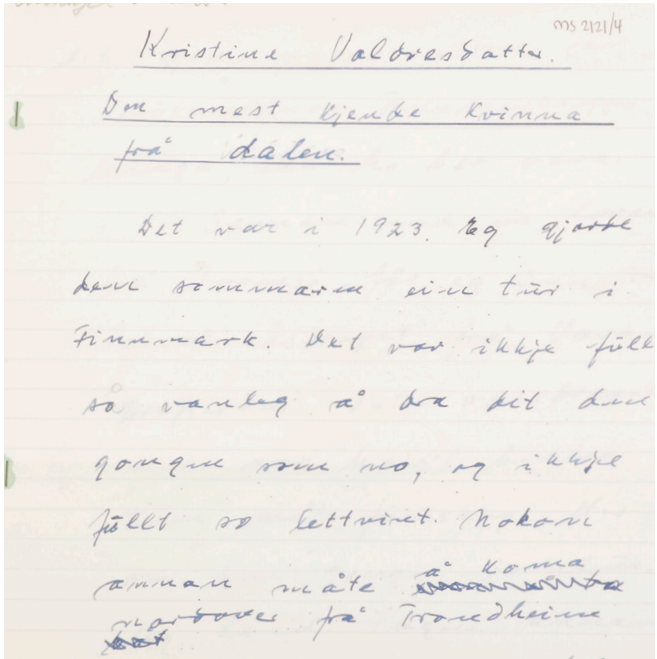 ms 2121/4
Kristine Valdresdatter.
Den mest kjende kvinna
frå dalen.
Det var i 1923. Eg gjorde
den sommaren ein tur i
Finnmark. Det var ikkje fullt
så vanleg å dra dit den
gongen som no, og ikkje
fullt so lettvint. Nokon
annan måte å koma
nordover frå Trondheim